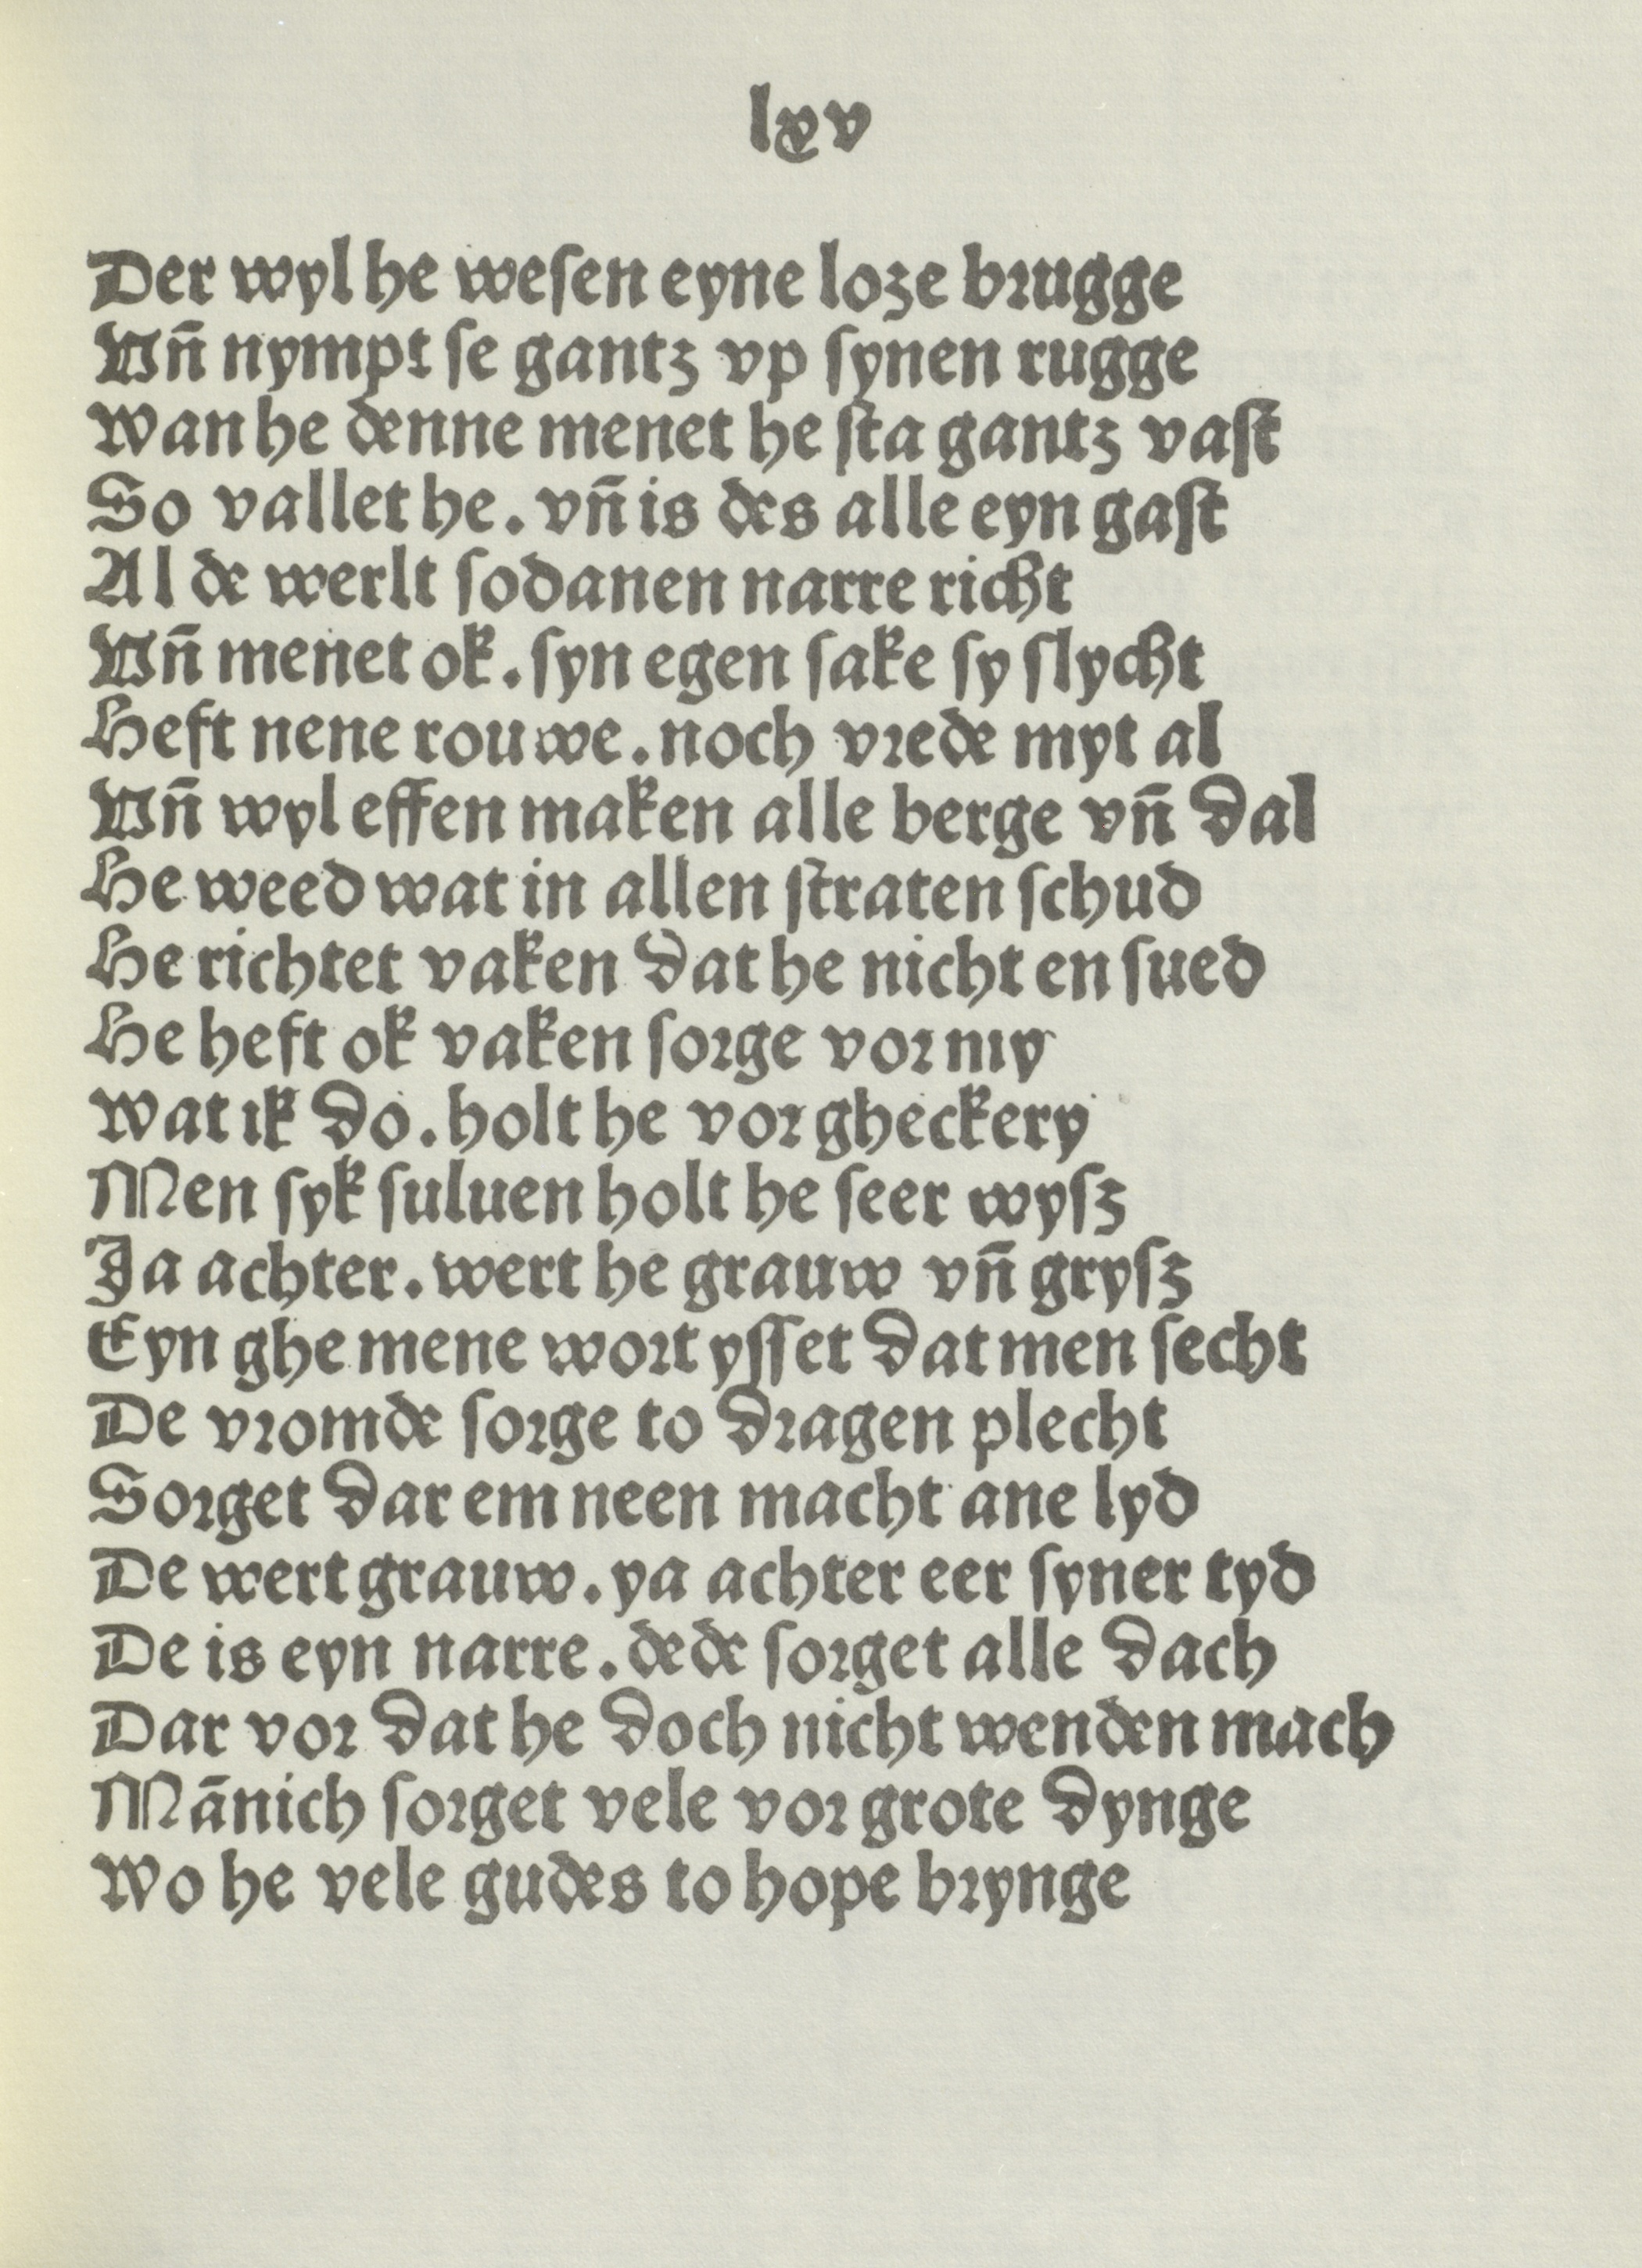 lxv
Der wyl he weſen eyne loze brugge
Vñ nympt ſe gantz vp ſynen rugge
Wan he denne menet he ſta gantz vaſt
So vallet he. vñ is des alle eyn gaſt
Al de werlt ſodanen narre richt
Vñ menet ok. ſyn egen ſake ſy ſlycht
Heft nene rouwe. noch vrede myt al
Vñ wyl effen maken alle berge vñ dal
He weed wat in allen ſtraten ſchud
He richtet vaken dat he nicht en ſued
He heft ok vaken ſorge vor my
Wat ik do. holt he vor gheckery
Men ſyk ſuluen holt he ſeer wyſz
Ja achter. wert he grauw vñ gryſz
Eyn ghemene wort yſſet dat men ſecht
De vromde ſorge to dragen plecht
Sorget dar em neen macht ane lyd
De wert grauw. ya achter eer ſyner tyd
De is eyn narre. dede ſorget alle dach
Dar vor dat he doch nicht wenden mach
Mānich ſorget vele vor grote dynge
Wo he vele gudes to hope brynge